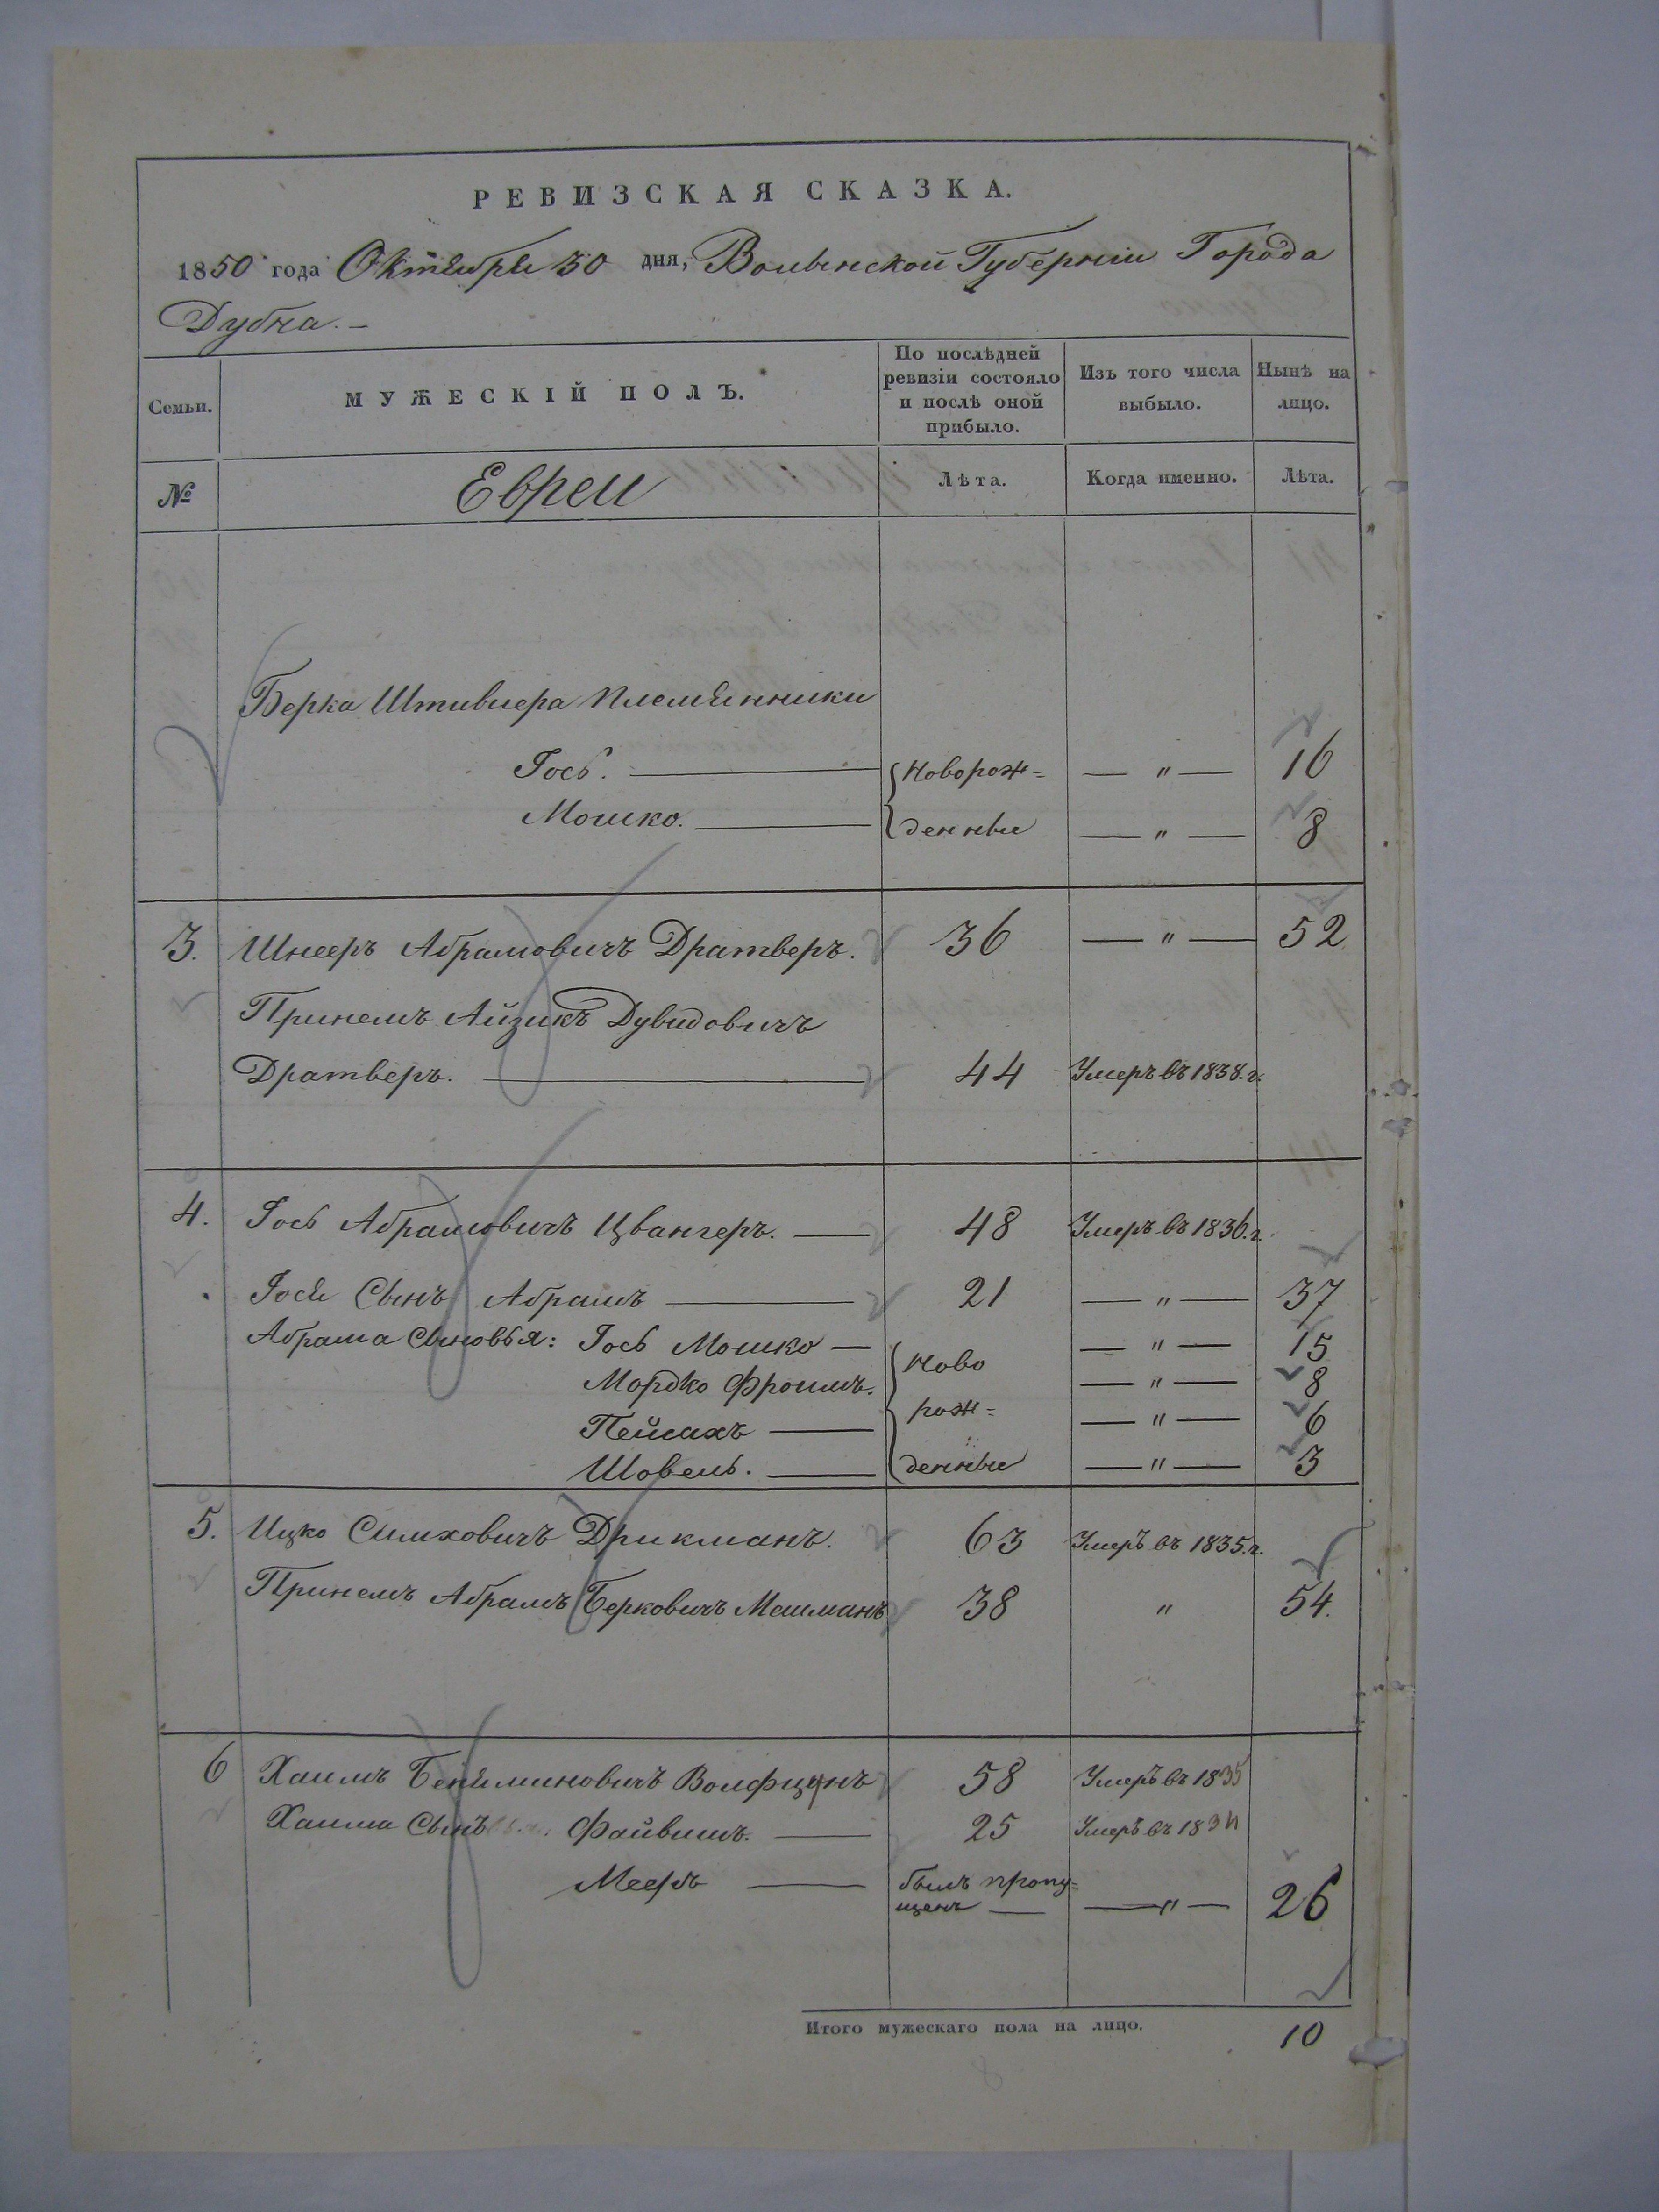 РЕВИЗСКАЯ СКАЗКА.
1850 года Октября 30 дня, Волынской Губерніи Города
Дубна. —
Семьи. МУЖЕСКІЙ ПОЛЪ. По послѣдней ревизіи состояло и послѣ оной прибыло. Изъ того числа выбыло. Нынѣ на лицо.
№ Евреи Лѣта. Когда именно. Лѣта.
Берка Штивлера племянники
Іось. — {Новорож= — " — 16
Мошко. — {денные — " — 8
3. Шнееръ Абрамовичъ Дратверъ. 36 — " — 52
Пріемъ Айзикъ Дувидовичъ
Дратверъ. — 44 Умеръ въ 1838. г.
4. Іось Абрамовичъ Цвангеръ. — 48 Умеръ въ 1836. г.
Іося Сынъ Абрамъ — 21 — " — 37
Абрама Сыновья: Іось Мошко — {Ново — " — 15
Мордко Фроимъ. — " — 8
Пейсахъ — рож= — " — 6
Шовель. — денные — " — 3
5. Ицко Симховичъ Дрикманъ. 63 Умеръ въ 1835. г.
Принемъ Абрамъ Беркович Мошманъ 38 " 54.
6 Хаимъ Беняминовичъ Волфцунъ 58 Умеръ въ 1835
Хаима Сынъ Файвишъ. — 25 Умеръ въ 1834
Мееръ — былъ пропу=
щенъ — — " — 26
Итого мужескаго пола на лицо. 10